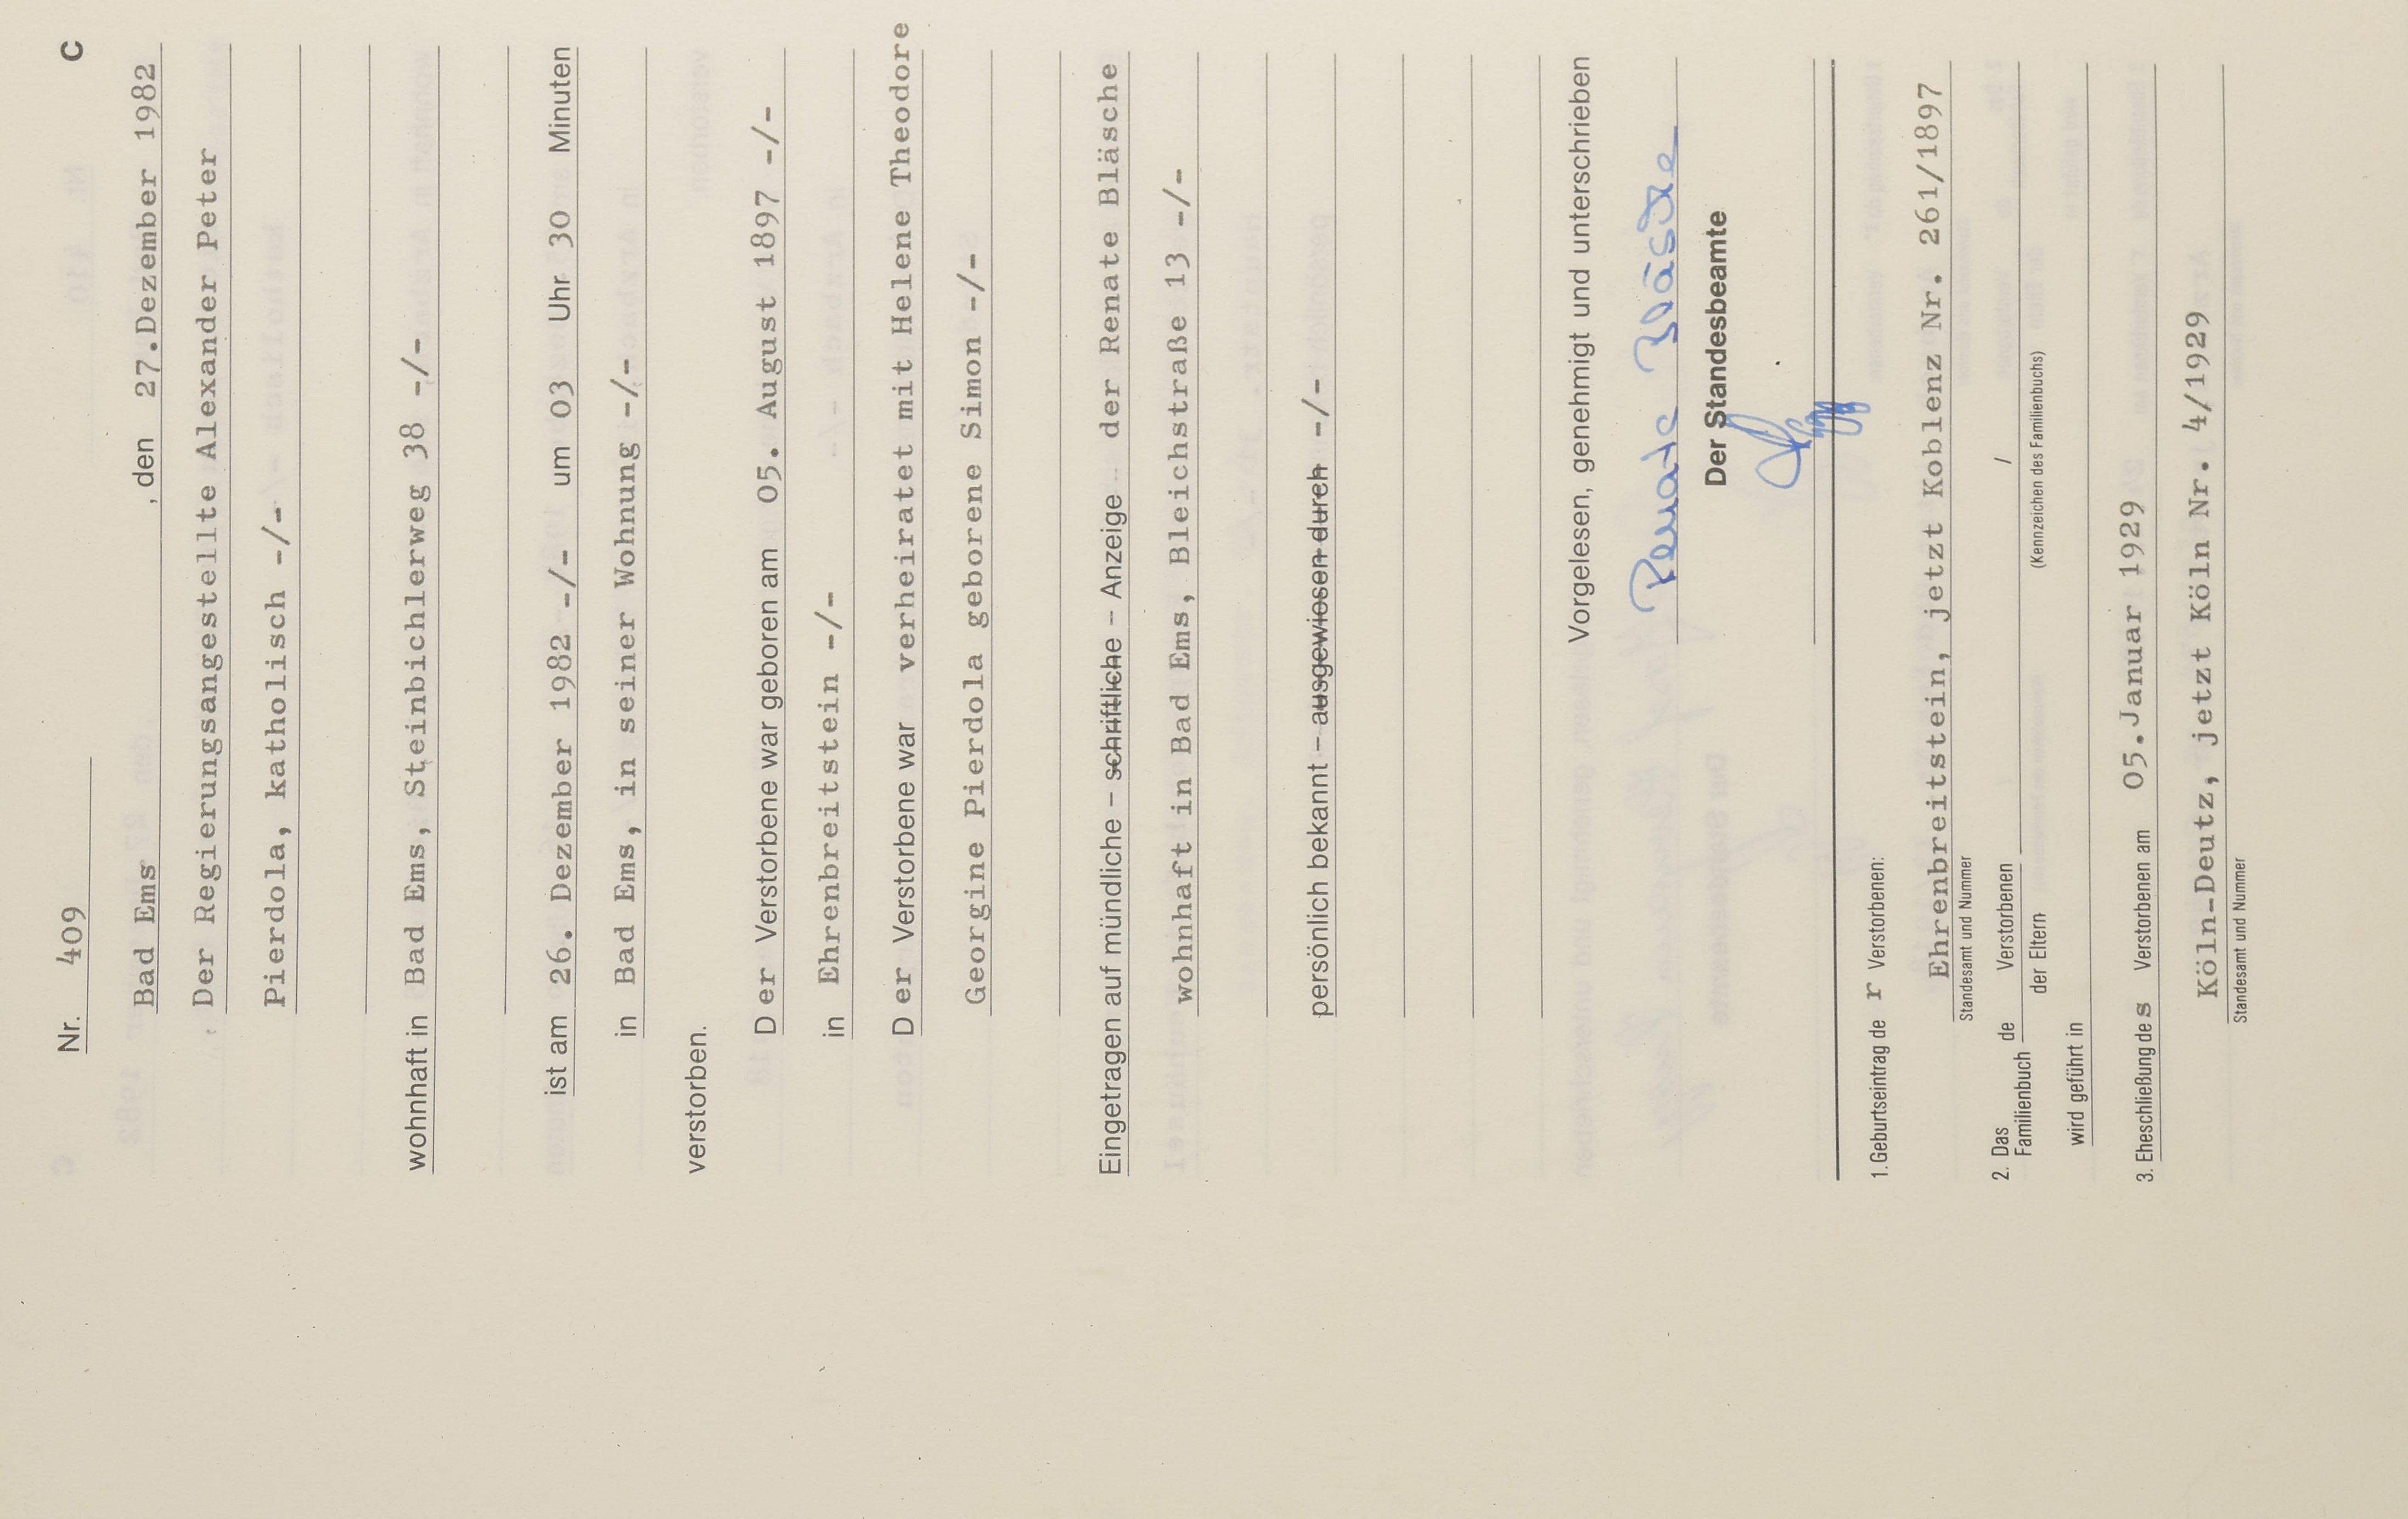 Nr. 409 C
Bad Ems , den 27.Dezember 1982
Der Regierungsangestellte Alexander Peter
Pierdola, katholisch -/-
wohnhaft in Bad Ems, Steinbichlerweg 38 -/-
ist am 26. Dezember 1982 -/- um 03 Uhr 30 Minuten
in Bad Ems, in seiner Wohnung -/-
verstorben.
Der Verstorbene war geboren am 05. August 1897 -/-
in Ehrenbreitstein -/-
Der Verstorbene war verheiratet mit Helene Theodore
Georgine Pierdola geborene Simon -/-
Eingetragen auf mündliche – schriftliche – Anzeige der Renate Bläsche
wohnhaft in Bad Ems, Bleichstraße 13 -/-
persönlich bekannt – ausgewiesen durch -/-
Vorgelesen, genehmigt und unterschrieben
Renate Bläsche
Der Standesbeamte
1. Geburtseintrag der Verstorbenen:
Ehrenbreitstein, jetzt Koblenz Nr. 261/1897
Standesamt und Nummer
2. Das Familienbuch de Verstorbenen /
der Eltern (Kennzeichen des Familienbuchs)
wird geführt in
3. Eheschließung des Verstorbenen am 05.Januar 1929
Köln-Deutz, jetzt Köln Nr. 4/1929
Standesamt und Nummer